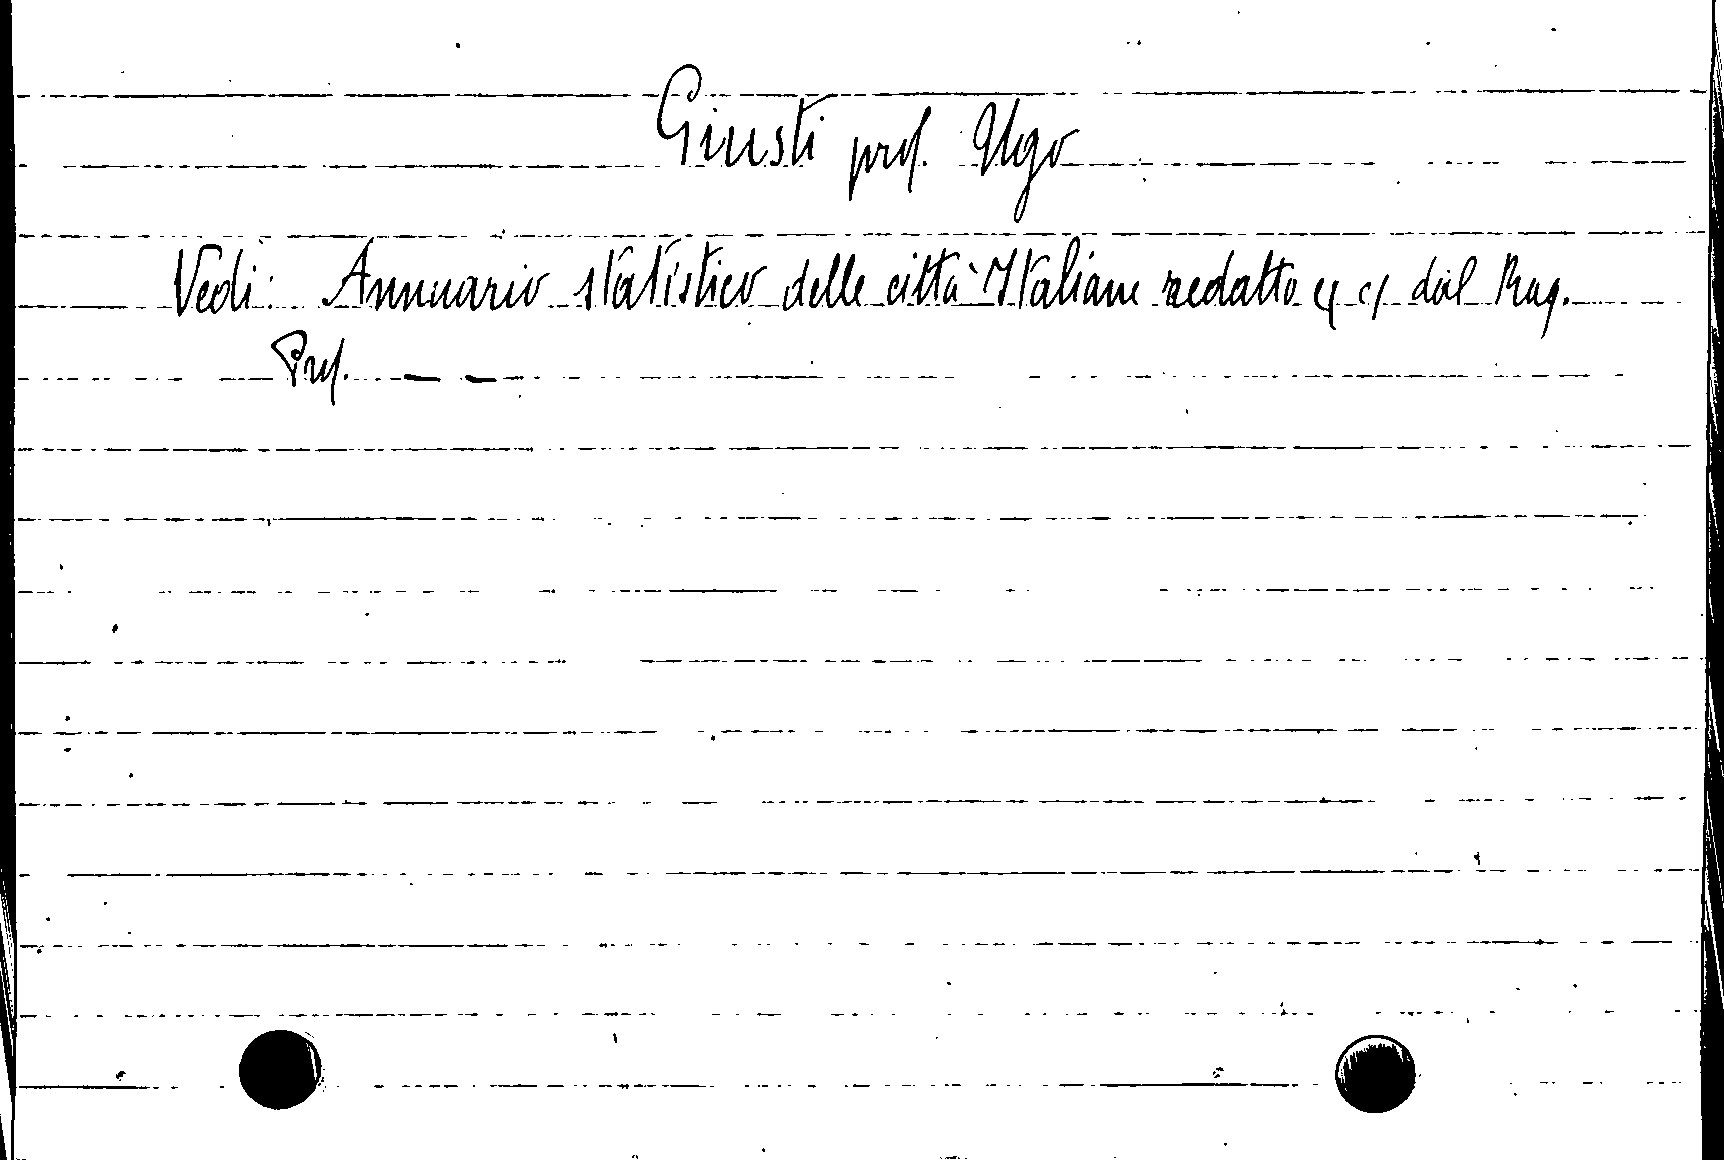 Giusti prof. Ugo
Vedi: Annuario statistico delle città Italiane redatto dal Rag.
Prof. — —